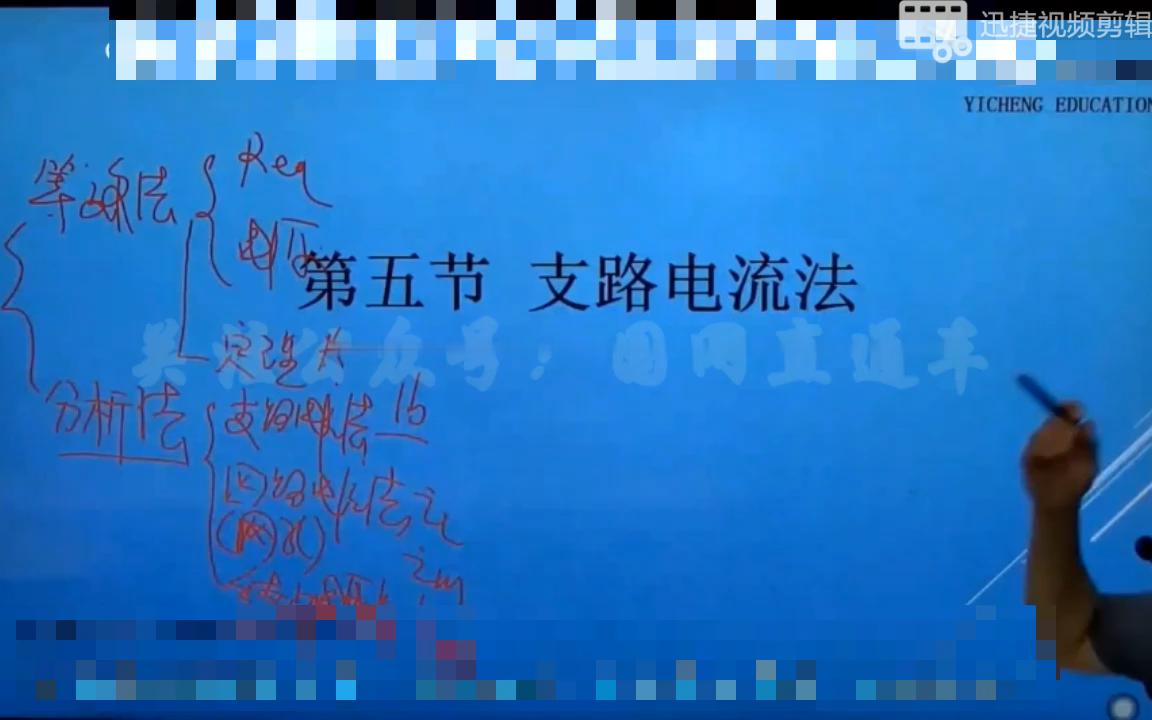 迅捷视频剪辑
YICHENG EDUCATION
等效法
Req
电压
第五节 支路电流法
定理
关注公众号：国网直通车
分析法
支路电流法 ib
回路电流法 il
(网孔) im